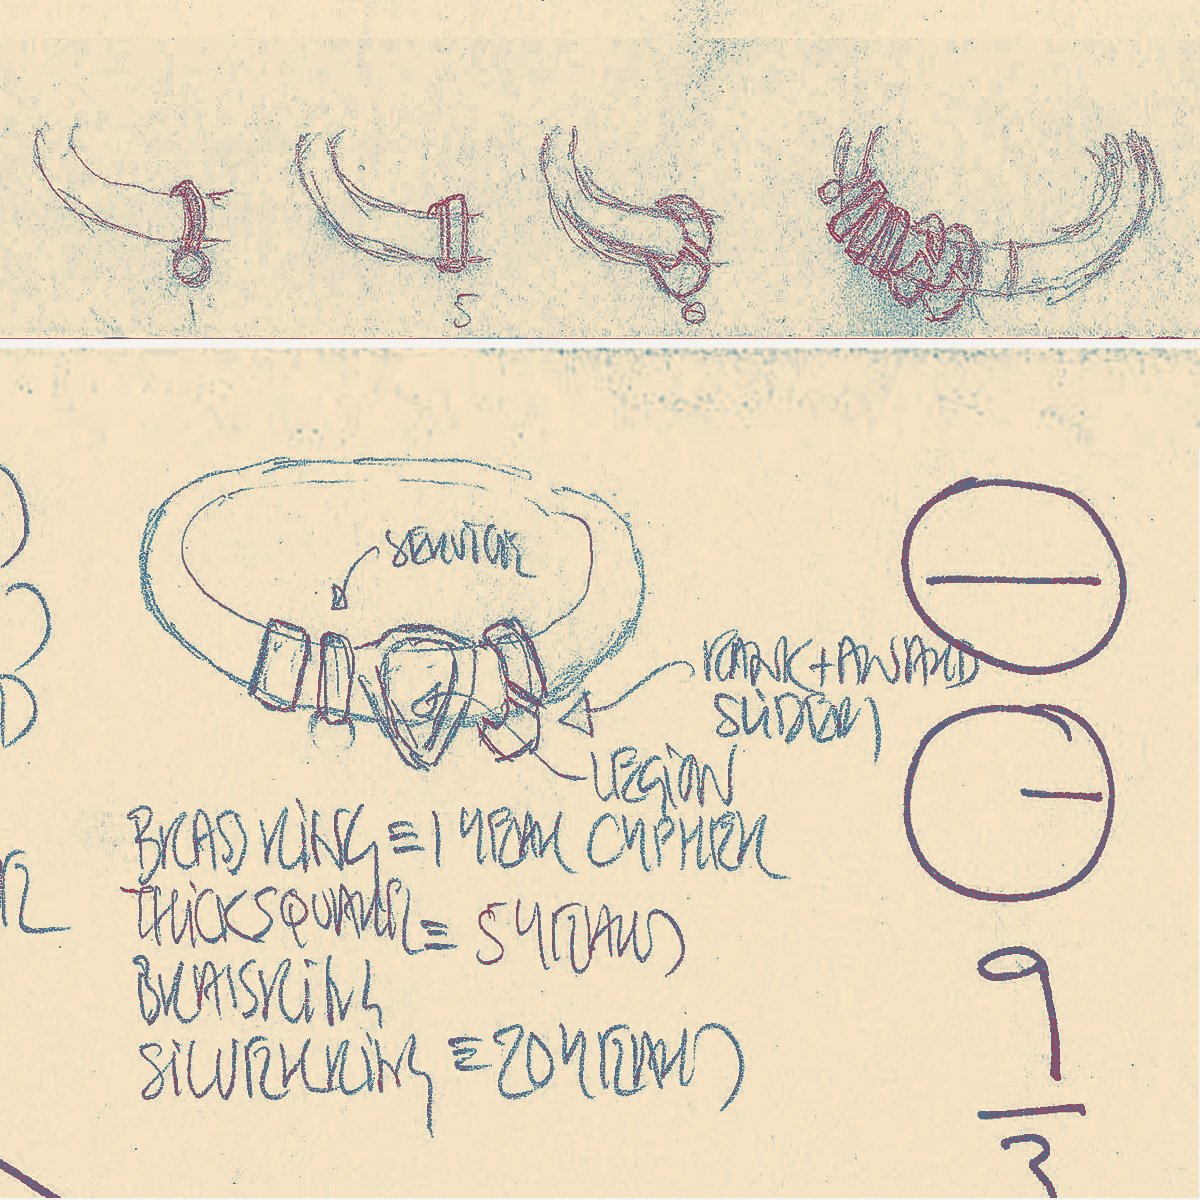 5
SERVICE
RANK + AWARD
SLIDERS
LEGION
BRASS RING = 1 YEAR CYPHER
THICK SQUARE = 5 YEARS
BRASS RING
SILVER RING = 20 YEARS
9
3